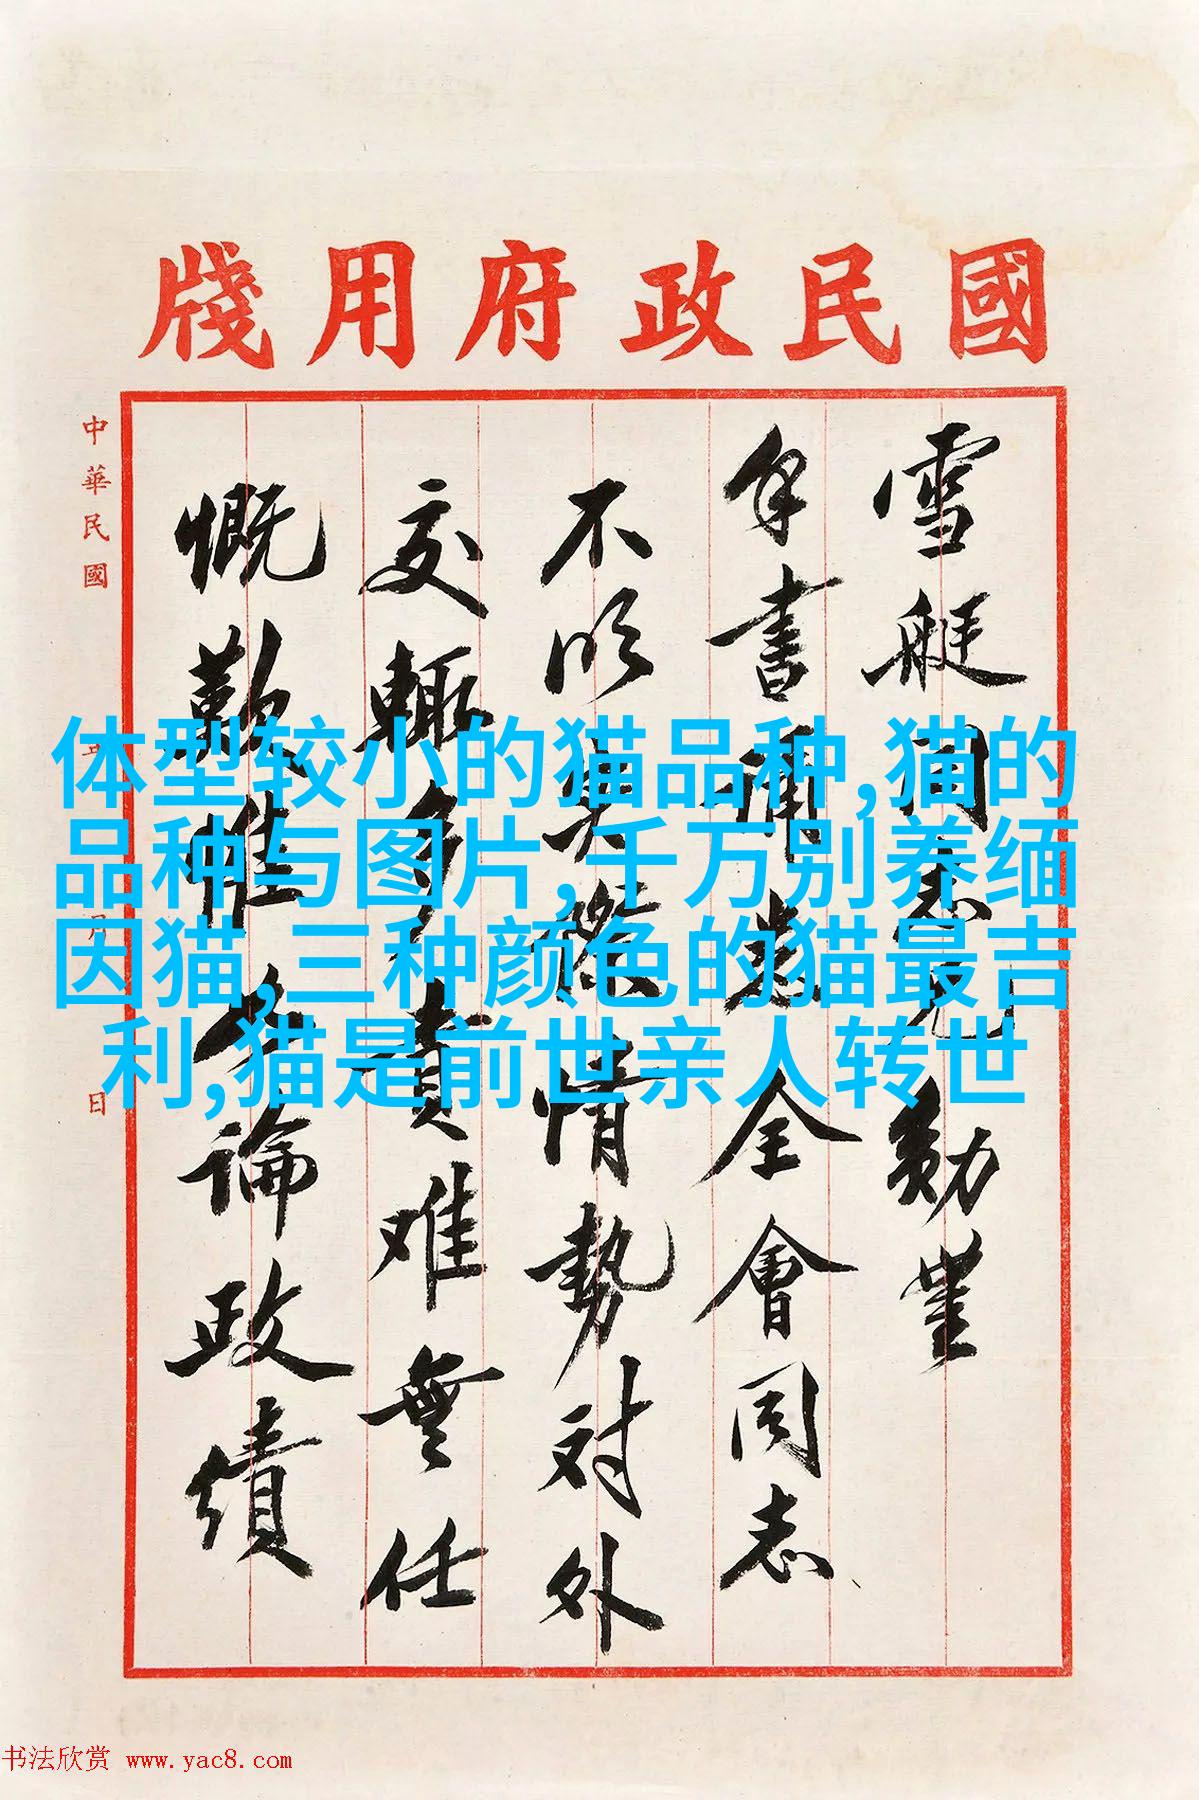 國民政府用牋
雪艇同志兄勛
手書誦悉全會同志
不明真際情勢对外
交輒多責难無任
慨歎惟論政績
中華民國年月日
体型较小的猫品种,猫的
品种与图片,千万别养缅
因猫,三种颜色的猫最吉
利,猫是前世亲人转世
书法欣赏 www.yac8.com